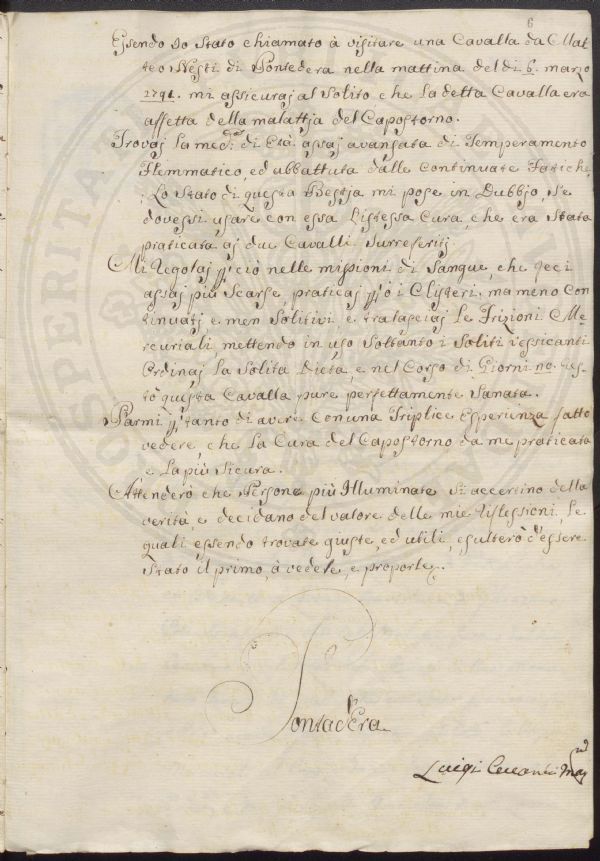 6
Essendo Io Stato chiamato à visitare una Cavalla da Mat
teo Nesti di Pontedera nella mattina del di 6. marzo
1791. mi assicuraj al Solito che La detta Cavalla era
affetta della malattja del Capostorno.
Trovaj La med.ma di Età assaj avansata di Temperamento
Flemmatico, ed abbattuta dalle Continuate Fatiche
Lo Stato di questa Bestja mi pose in Dubbjo, Se
dovessi usare con essa Listessa Cura, che era Stata
praticata aj due Cavalli Surreferiti
Mi Regolaj p. ciò nelle missioni di Sangue, che feci
assaj più Scarse, praticaj p. ò i Clisteri, ma meno Con
tinuati e men Solitivi, e tralasciaj Le Frizioni Me
curiali mettendo in uso Soltanto i Soliti Vessicanti
Ordinaj La Solita Dieta, e nel Corso di Giorni no. res
tò questa Cavalla pure perfettamente Sanata.
Parmi p. tanto di avere Con una Triplice esperienza fatto
vedere, che La Cura del Capostorno da me praticata
è La più Sicura.
Attenderò che Persone più Illuminate Si accertino della
verità, e decidano del valore delle mie Riflessioni, Le
quali essendo trovate giuste, ed utili, esulterò d'essere
Stato il primo, à vederle, e proporle.
Pontad'Era
Luigi
PROSPERITATI